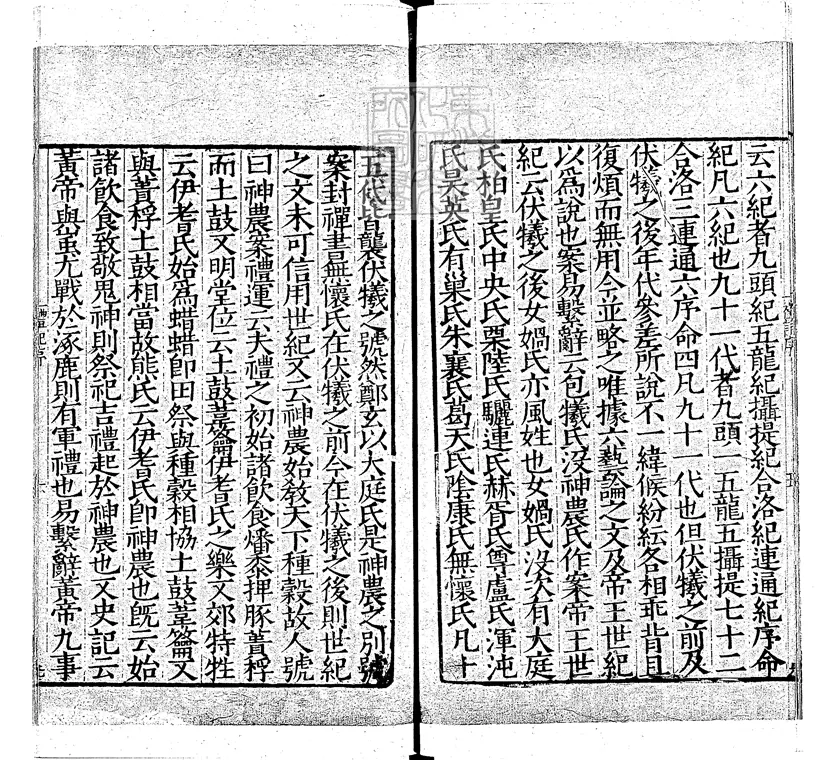 云六紀者九頭紀五龍紀攝提紀合洛紀連通紀序命
紀凡六紀也九十一代者九頭一五龍五攝提七十二
合洛三連通六序命四凡九十一代也但伏犧之前及
伏犧之後年代參差所說不一緯候紛紜各相乖背且
復煩而無用今並略之唯據六藝論之文及帝王世紀
以爲說也案易繫辭云包犧氏沒神農氏作案帝王世
紀云伏犧之後女媧氏亦風姓也女媧氏沒次有大庭
氏柏皇氏中央氏栗陸氏驪連氏赫胥氏尊盧氏渾沌
氏昊英氏有巢氏朱襄氏葛天氏陰康氏無懷氏凡十
五代皆襲伏犧之號然鄭玄以大庭氏是神農之別號
案封禪書無懷氏在伏犧之前今在伏犧之後則世紀
之文未可信用世紀又云神農始敎天下種穀故人號
曰神農案禮運云夫禮之初始諸飮食燔黍捭豚蕢桴
而土鼓又明堂位云土鼓葦籥伊耆氏之樂又郊特牲
云伊耆氏始爲蜡蜡卽田祭與種穀相協土鼓葦籥又
與蕢桴土鼓相當故熊氏云伊耆氏卽神農也旣云始
諸飮食致敬鬼神則祭祀吉禮起於神農也又史記云
黃帝與蚩尤戰於涿鹿則有軍禮也易繫辭黃帝九事